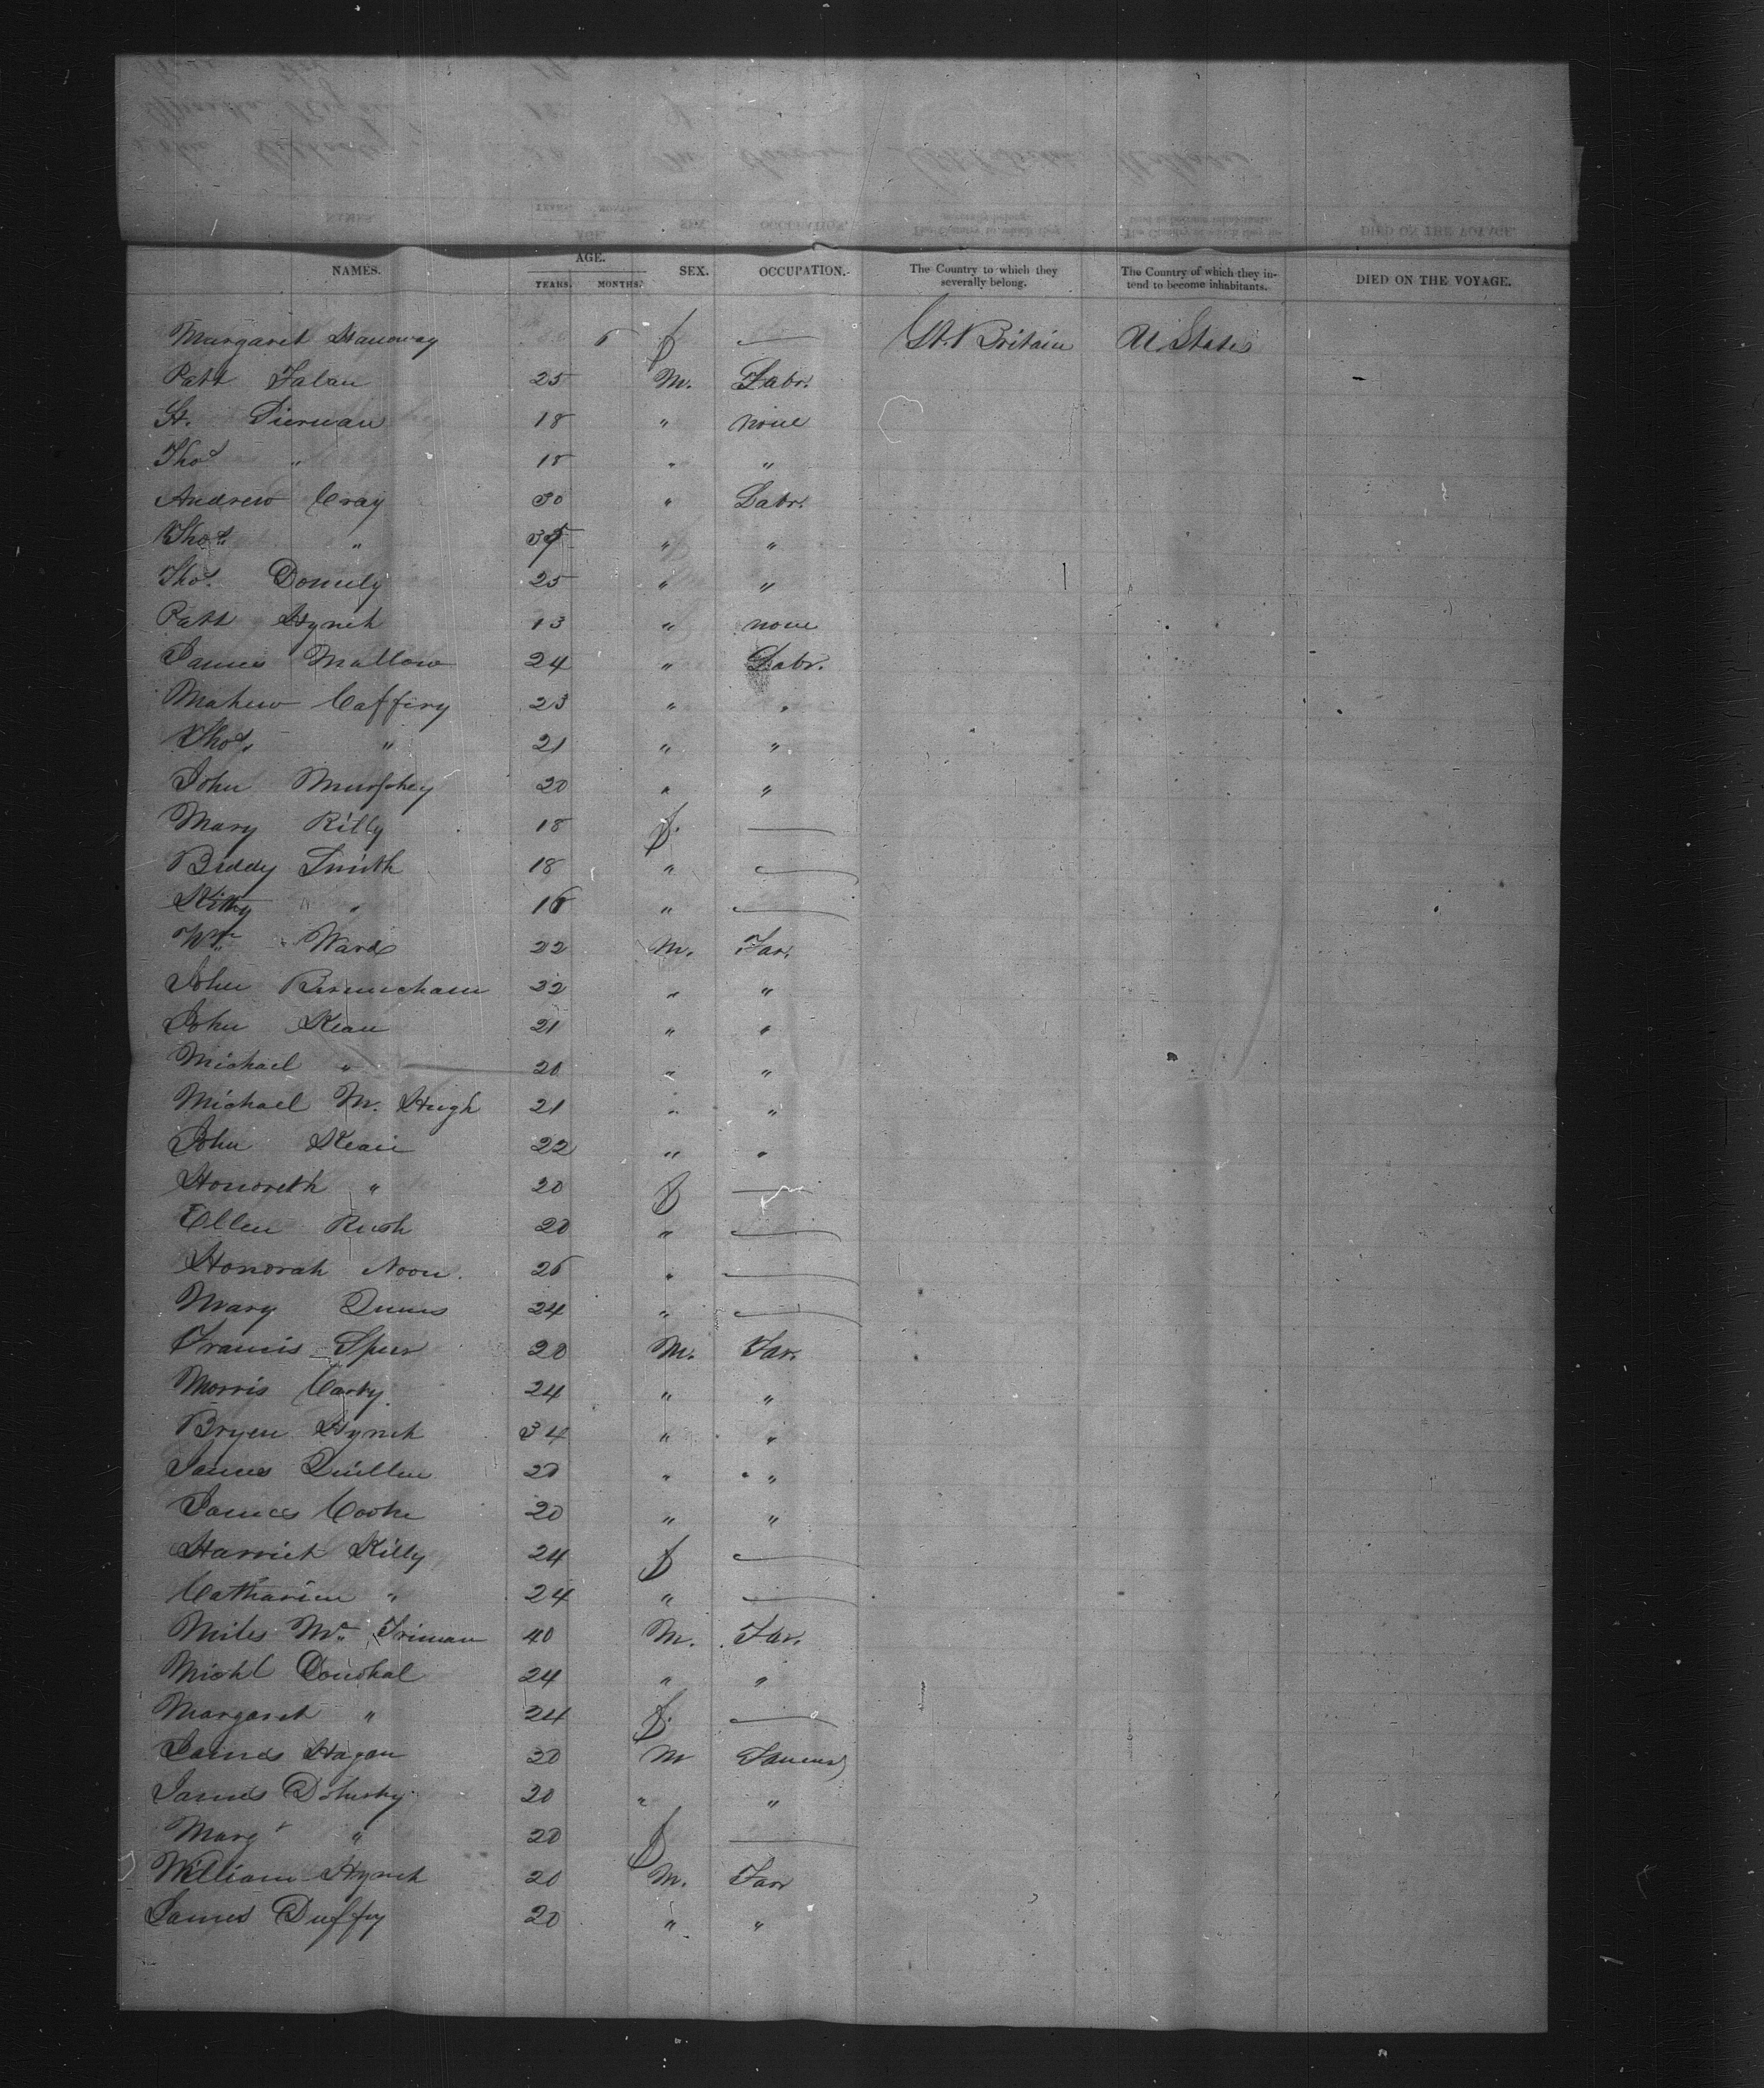 NAMES. AGE. YEARS. MONTHS. SEX. OCCUPATION. The Country to which they severally belong. The Country of which they intend to become inhabitants. DIED ON THE VOYAGE.
Margaret Hanoway 6 f — Gt. Britain U. States
Patt Falan 25 M. Labr.
Tierman 18 " none
Thos " 18 " "
Andrew Cray 30 " Labr.
Thos. " " "
Thos. Donnely 25 " "
Patt Lynch 13 " none
James Mallow 24 " Labr.
Mathew Caffery 23 " "
Thos. " 21 " "
John Murphey 20 " "
Mary Rilly 18 f. —
Biddy Smith 18 " —
Kitty " 16 " —
Wm. Ward 22 M. Far.
John Birmincham 22 " "
John Kean 21 " "
Michael " 20 " "
Michael M. Hugh 21 " "
John Kean 22 " "
Honoreth " 20 f —
Ellen Rush 20 " —
Honorah Noon. 26 " —
Mary Quins 24 " —
Francis Speer 20 M. Far.
Morris Carty 24 " "
Bryen Lynch 34 " "
James Quillen 20 " "
James Cooke 20 " "
Harriet Killy 24 f —
Catharine " 24 " —
Miles Mc. 40 M. Far.
Michl 24 " "
Margaret " 24 f. —
James Hagan 20 M Farmer
James Doherty 20 " "
Margt " 20 f —
William Lynch 20 M. Far
James Duffy 20 " "